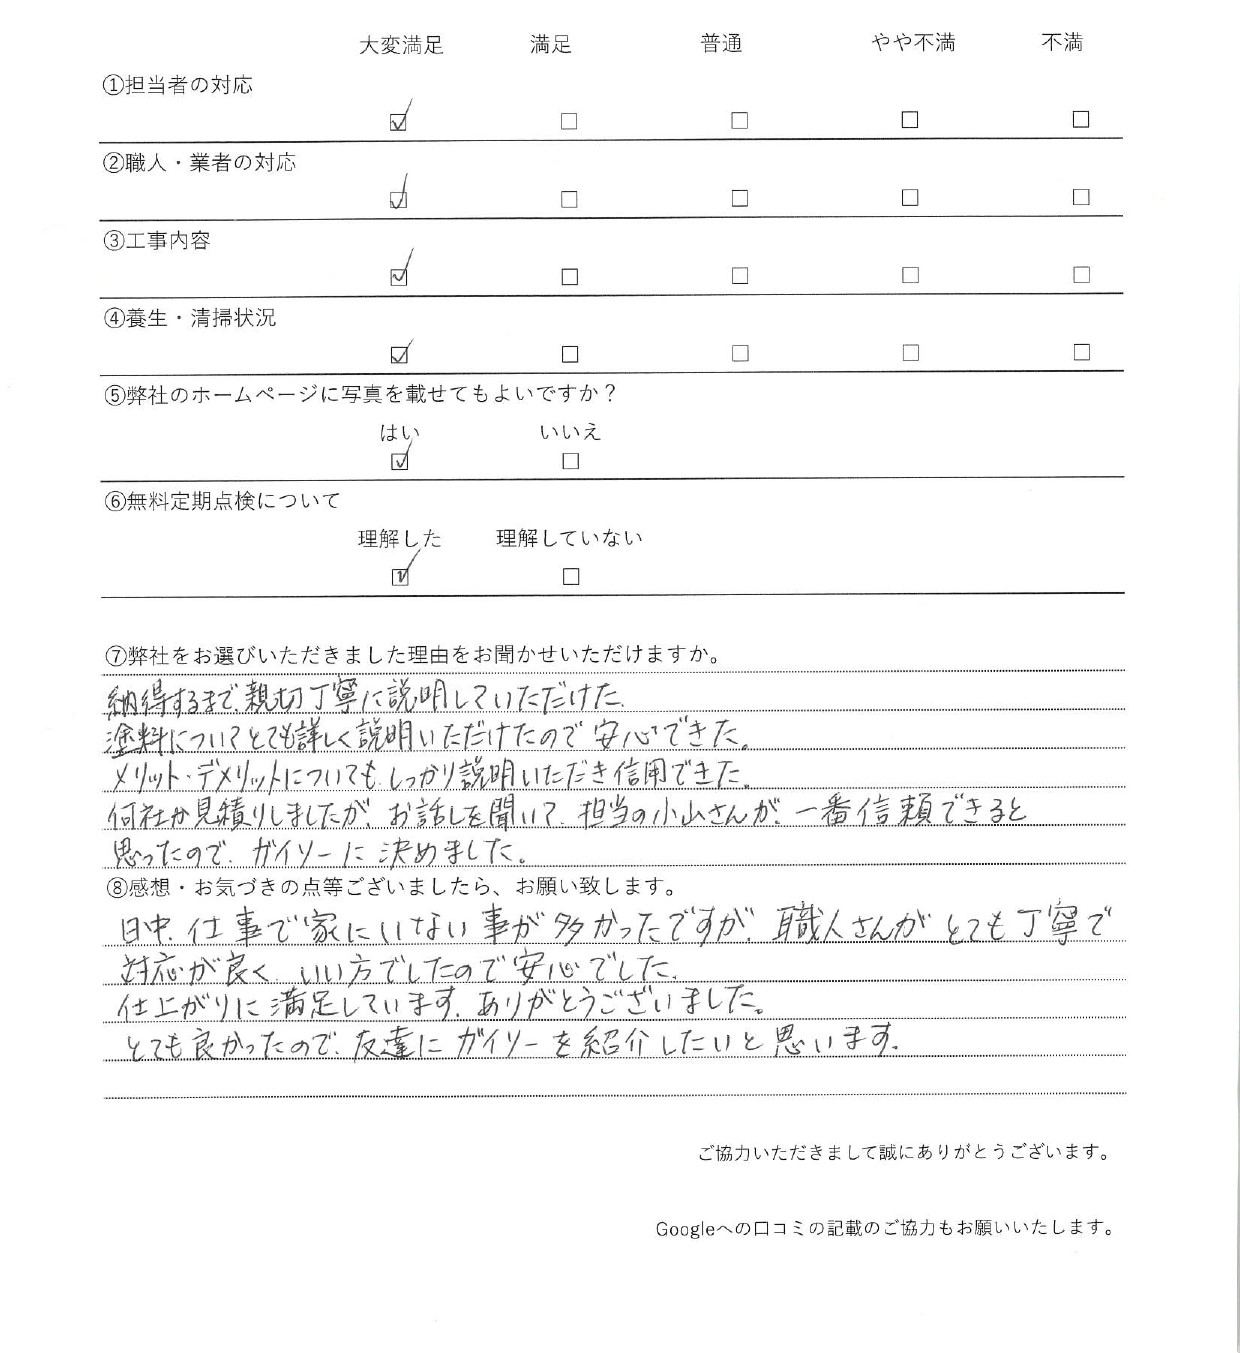 大変満足 満足 普通 やや不満 不満
①担当者の対応
②職人・業者の対応
③工事内容
④養生・清掃状況
⑤弊社のホームページに写真を載せてもよいですか？
はい いいえ
⑥無料定期点検について
理解した 理解していない
⑦弊社をお選びいただきました理由をお聞かせいただけますか。
納得するまで、親切丁寧に説明していただけた。
塗料についてとても詳しく説明いただけたので安心できた。
メリット・デメリットについても、しっかり説明いただき信用できた。
何社か見積りしましたが、お話しを聞いて、担当の小山さんが、一番信頼できると
思ったので、ガイソーに決めました。
⑧感想・お気づきの点等ございましたら、お願い致します。
日中、仕事で家にいない事が多かったですが、職人さんがとても丁寧で
対応が良く、いい方でしたので安心でした。
仕上がりに満足しています。ありがとうございました。
とても良かったので、友達にガイソーを紹介したいと思います。
ご協力いただきまして誠にありがとうございます。
Googleへの口コミの記載のご協力もお願いいたします。